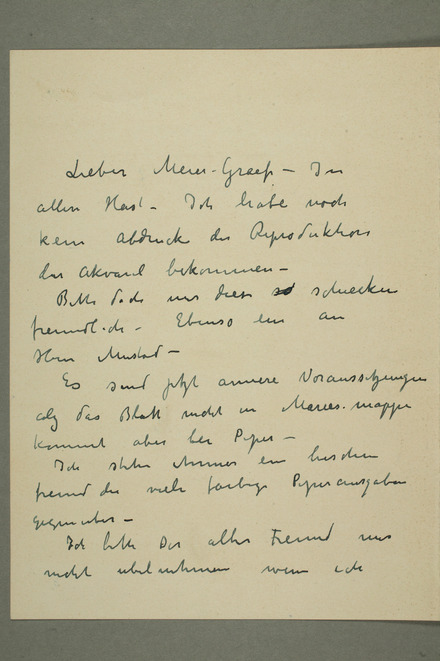 Lieber Meier-Graefe – In
aller Hast – Ich habe noch
kein Abdruck der Reproduktion
des Akvarel bekommen –
Bitte doch mir diese zu schicken
freundlichst – Ebenso ein an
Herr Mustad –
Es sind jetzt andere Voraussetzungen
das Blatt nicht in Marees-mappe
kommt aber bei Piper –
Ich stehe immer ein bischen
fremd die viele farbige Piperausgaben
gegenüber –
Ich bitte Sie alter Freund mir
nicht übelnehmen wenn ich